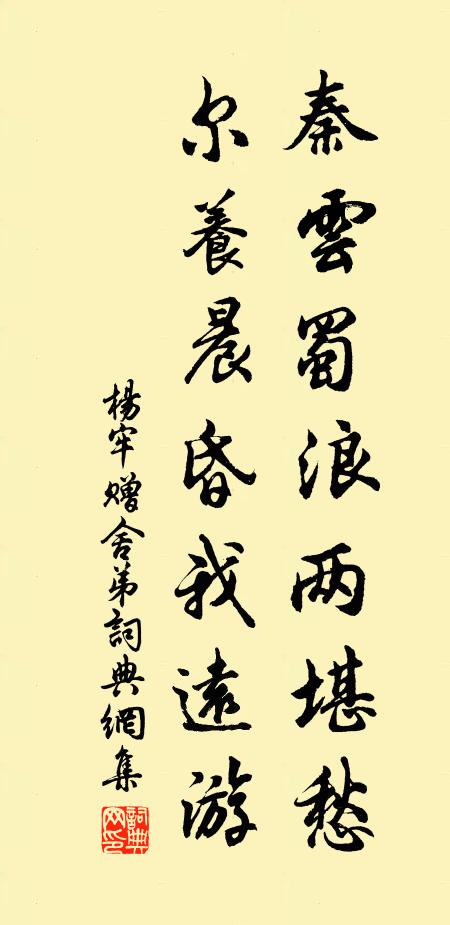 秦雲蜀浪两堪愁
尔養晨昏我遠游
楊牢赠舍弟詞典網集
詞典网印